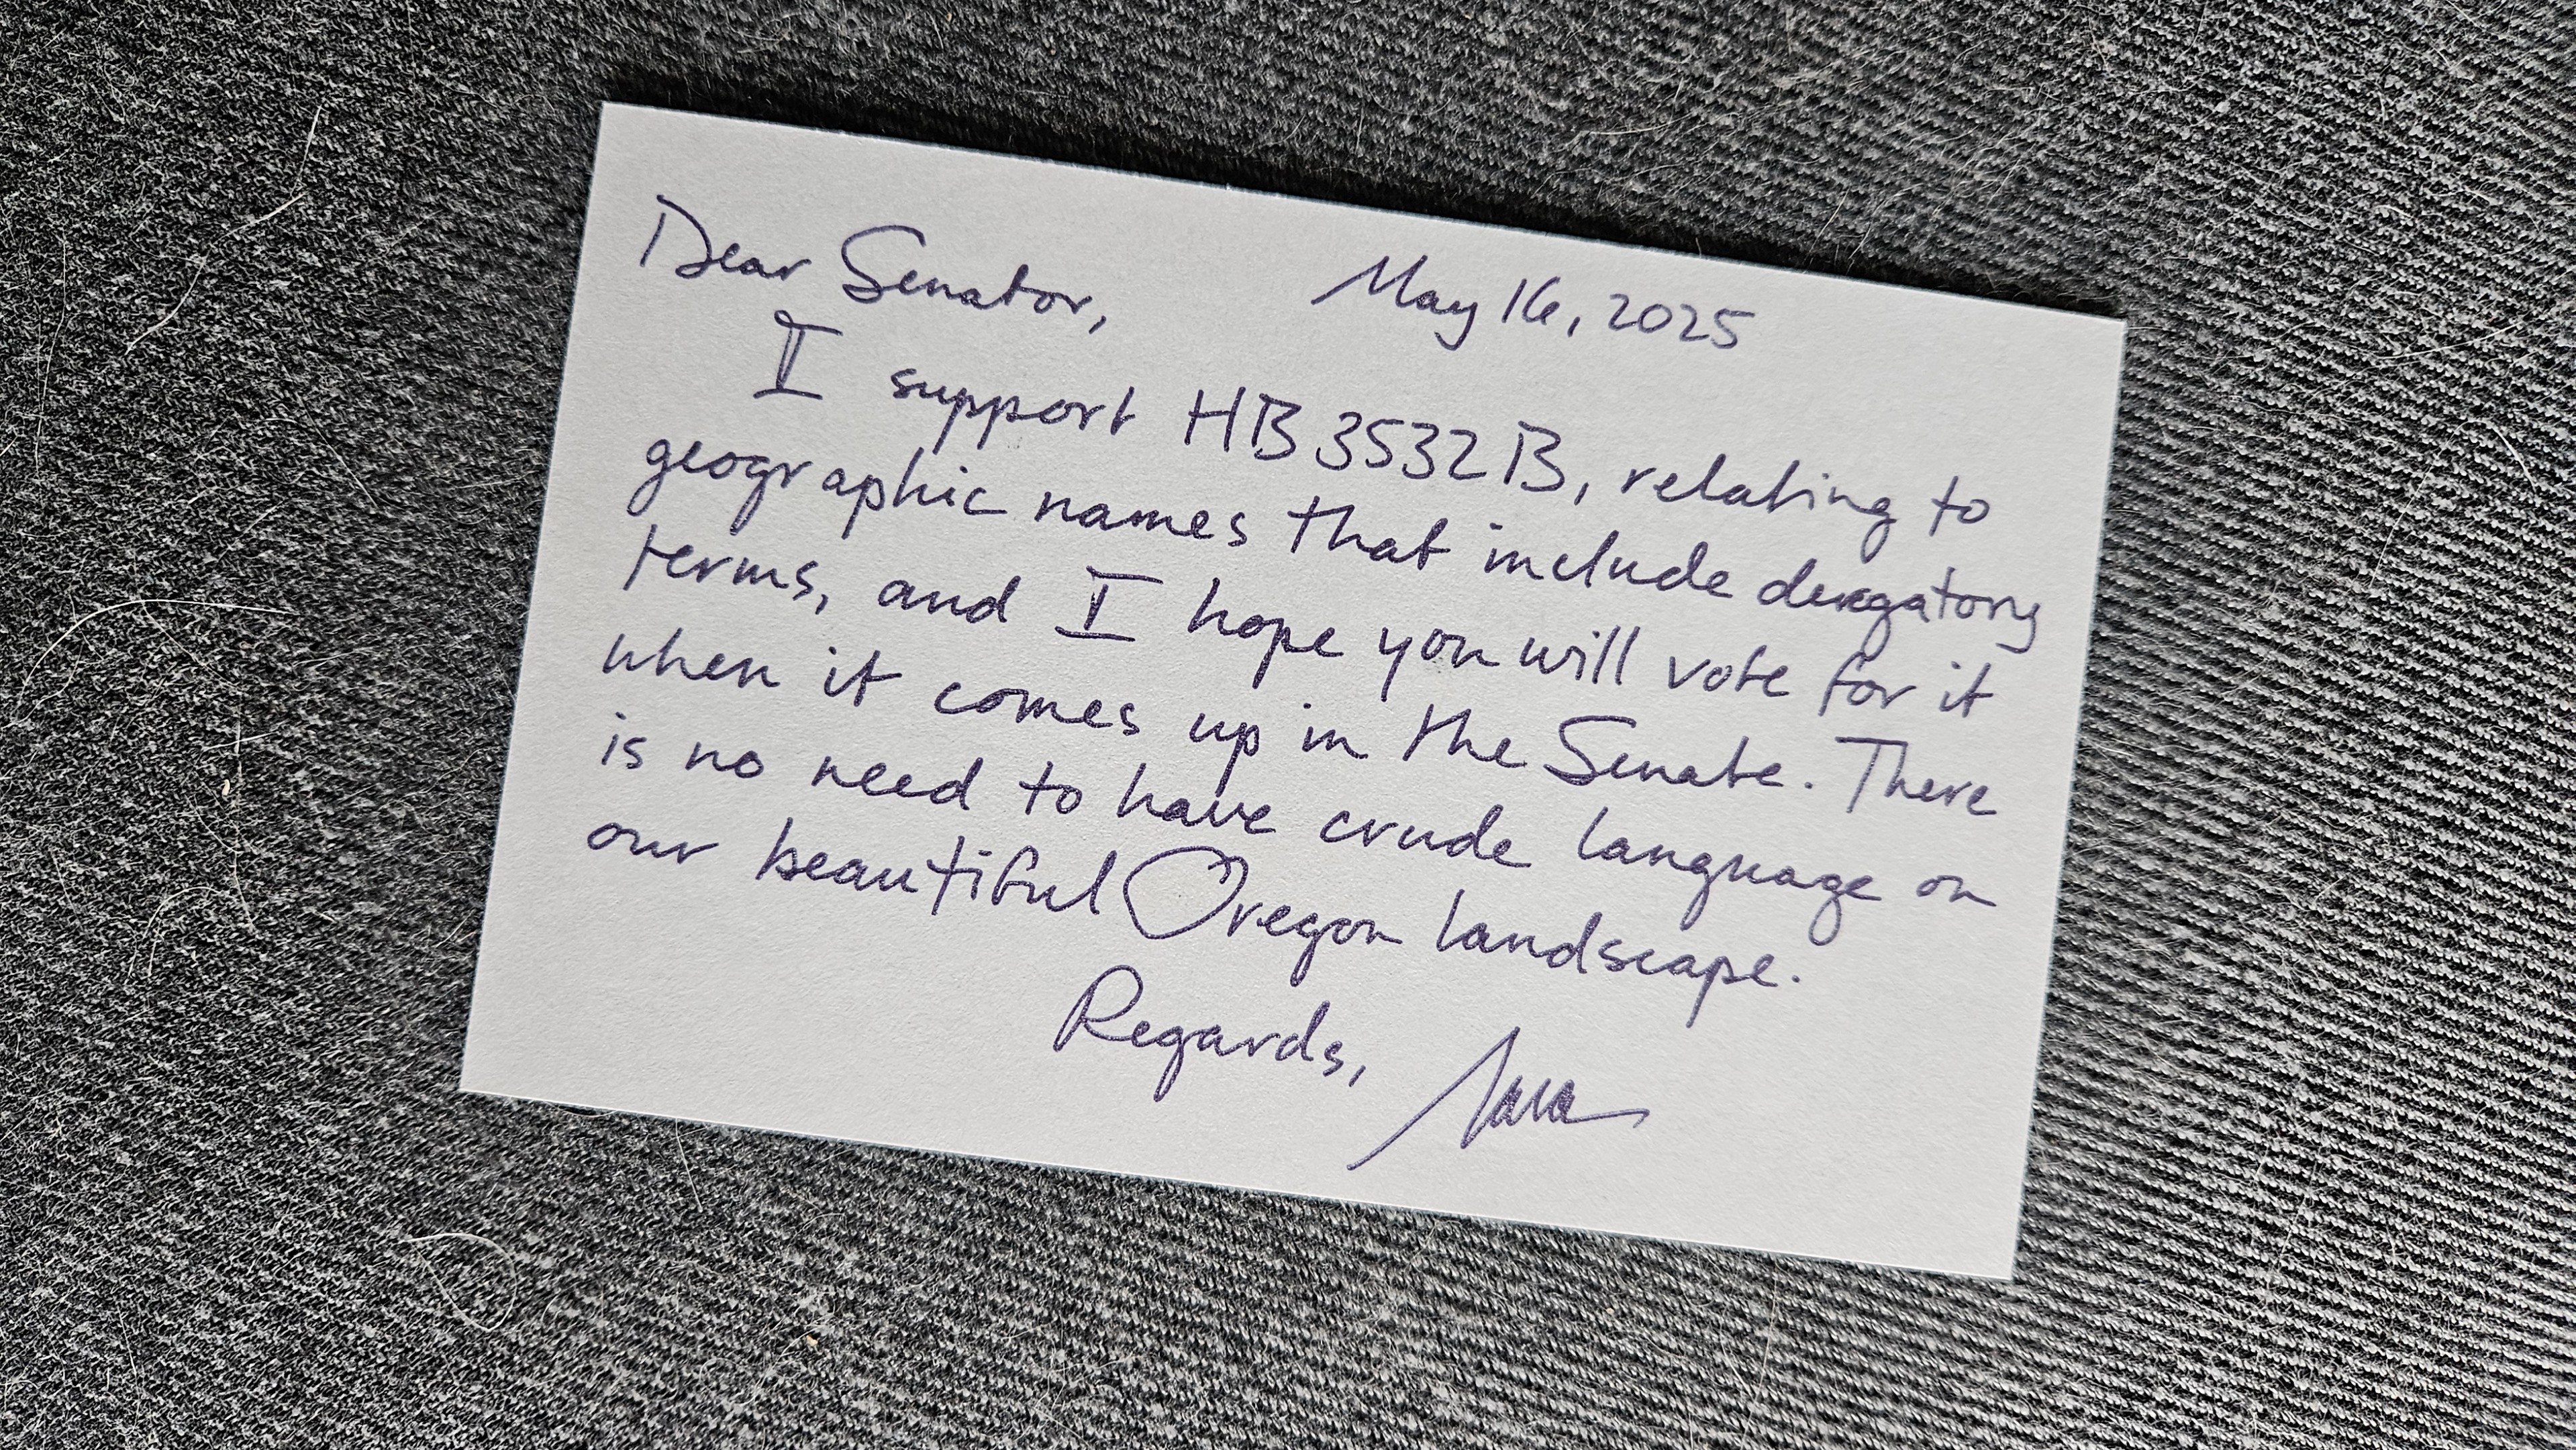 Dear Senator, May 16, 2025
I support HB 3532 B, relating to
geographic names that include derogatory
terms, and I hope you will vote for it
when it comes up in the Senate. There
is no need to have crude language on
our beautiful Oregon landscape.
Regards,